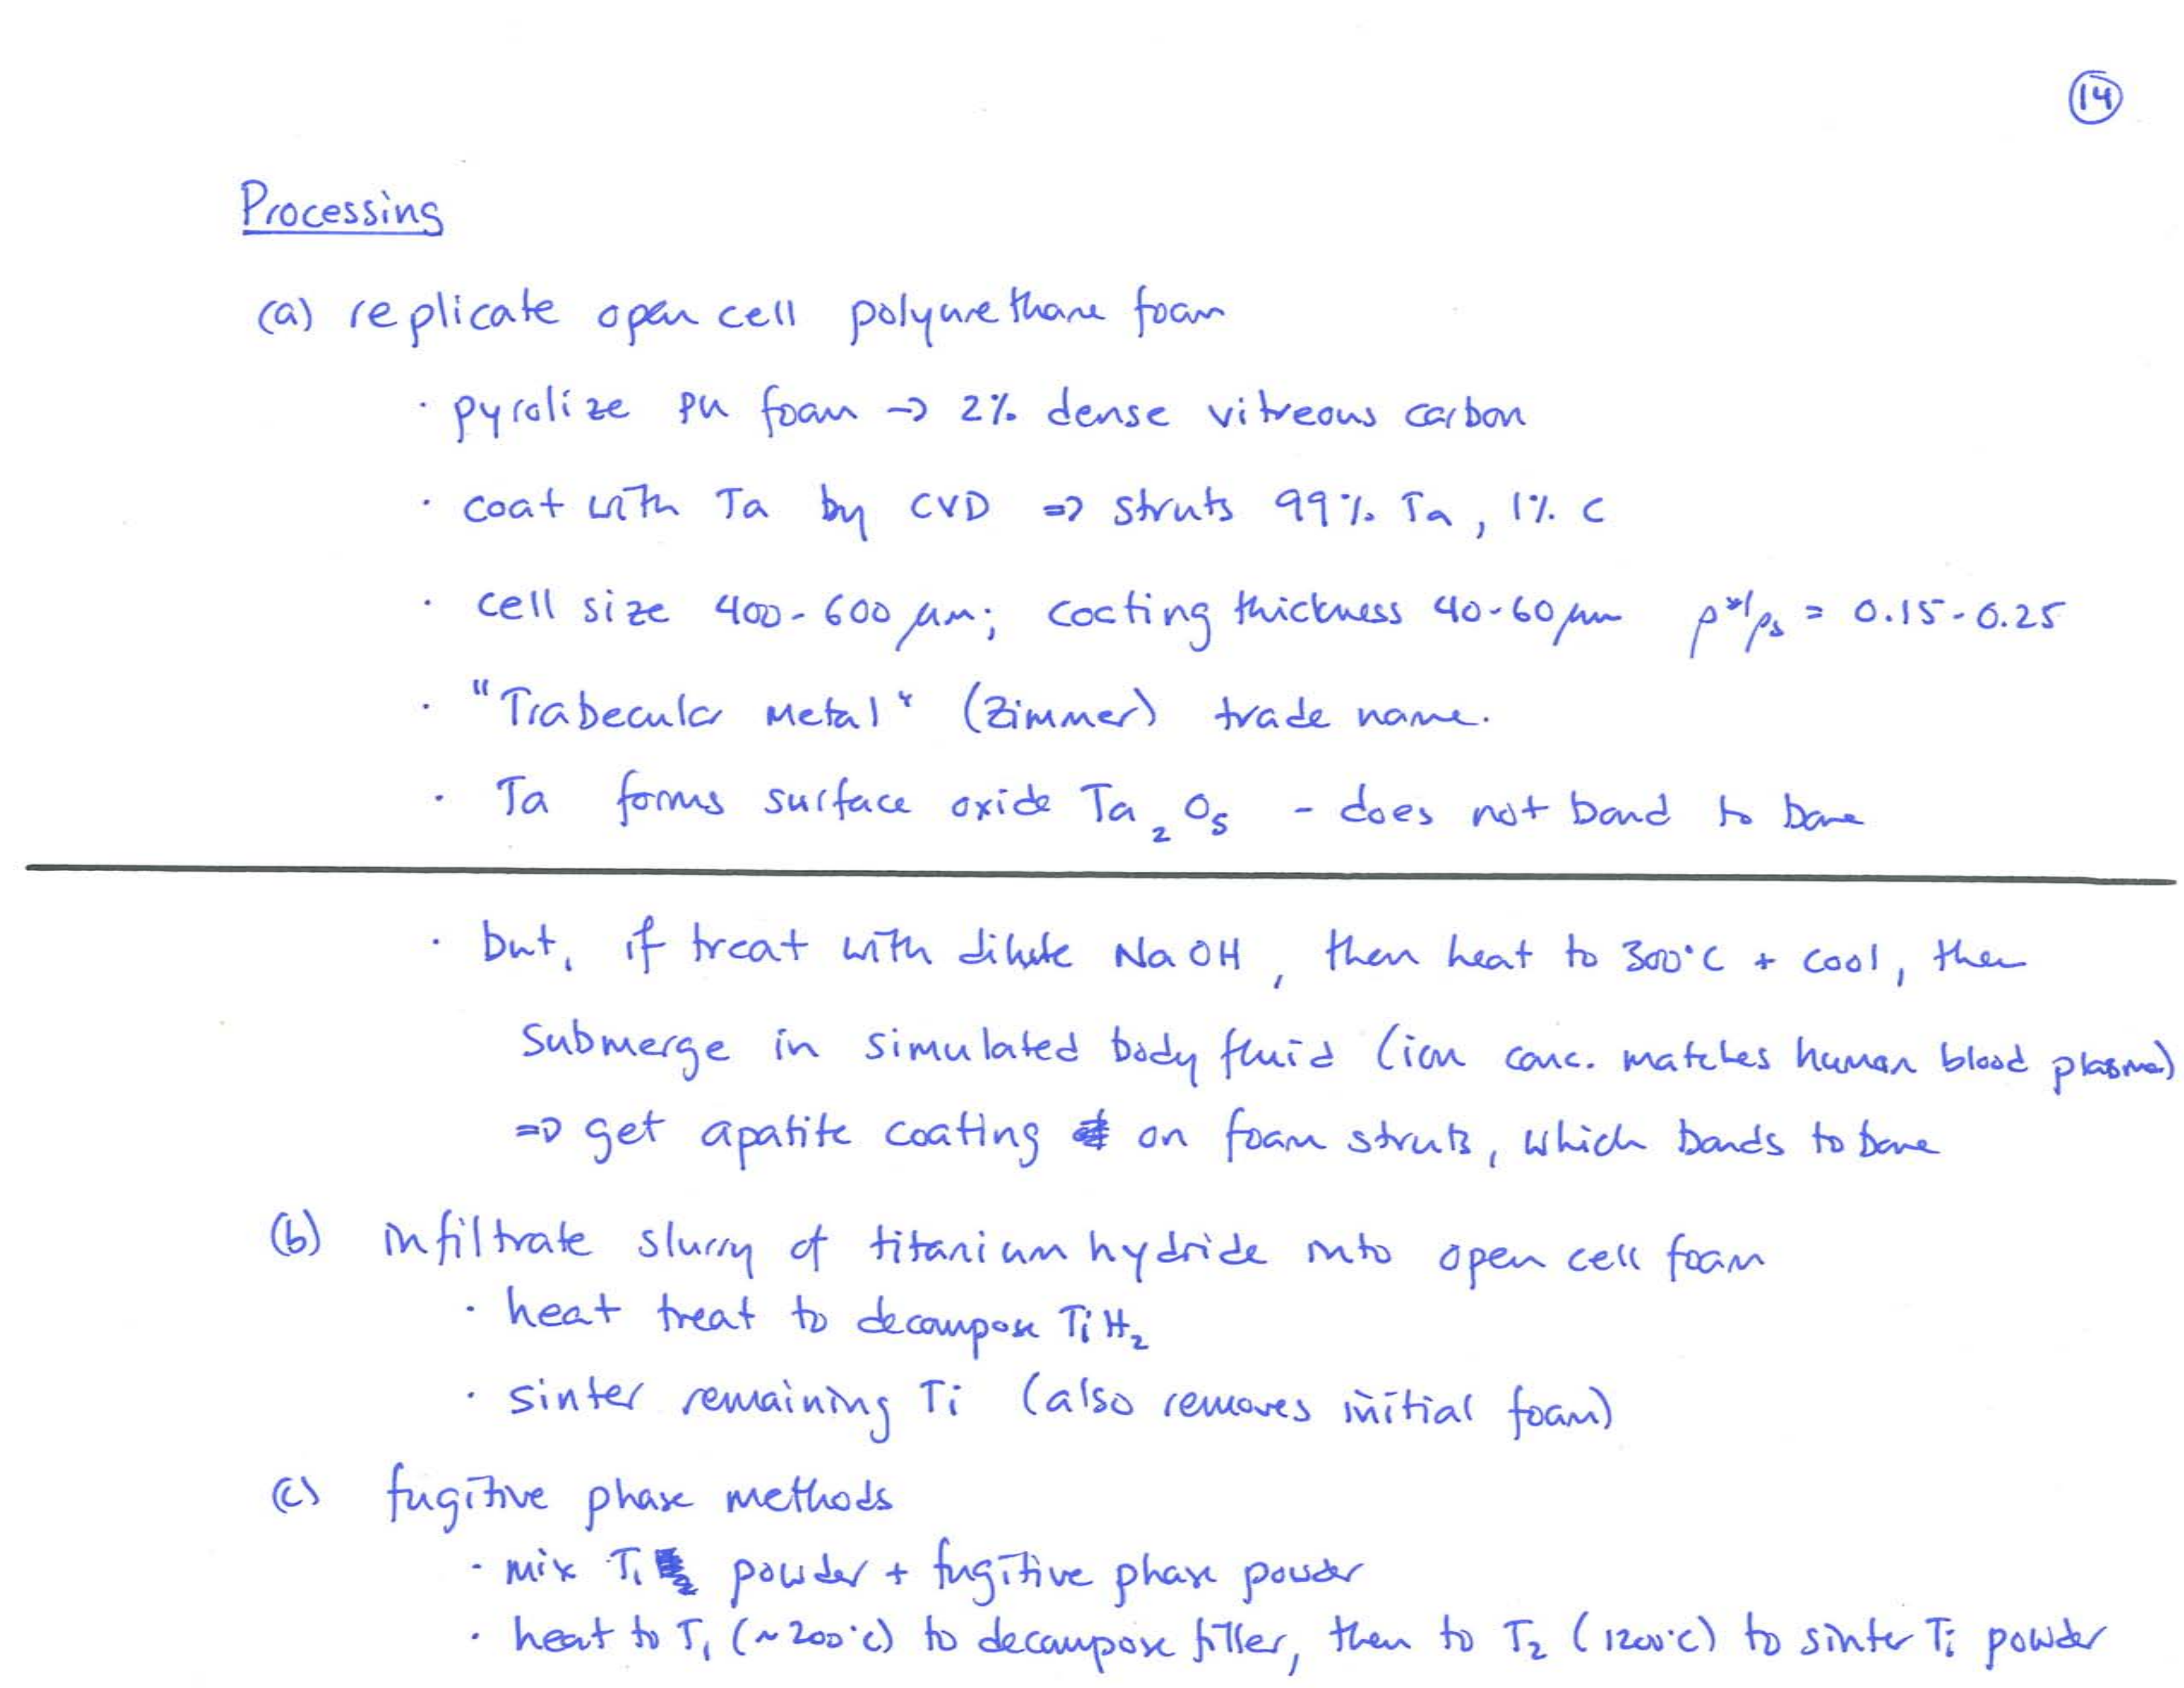 14
Processing
(a) replicate open cell polyurethane foam
· pyrolize PU foam → 2% dense vitreous carbon
· coat with Ta by CVD ⇒ struts 99% Ta, 1% C
· cell size 400-600 μm; coating thickness 40-60 μm ρ*/ρs = 0.15-0.25
· "Trabecular Metal" (Zimmer) trade name.
· Ta forms surface oxide Ta₂O₅ - does not bond to bone
· but, if treat with dilute NaOH, then heat to 300°C + cool, then
submerge in simulated body fluid (ion conc. matches human blood plasma)
⇒ get apatite coating on foam struts, which bonds to bone
(b) infiltrate slurry of titanium hydride into open cell foam
· heat treat to decompose TiH₂
· sinter remaining Ti (also removes initial foam)
(c) fugitive phase methods
· mix Ti powder + fugitive phase powder
· heat to T₁ (~200°C) to decompose filler, then to T₂ (1200°C) to sinter Ti powder